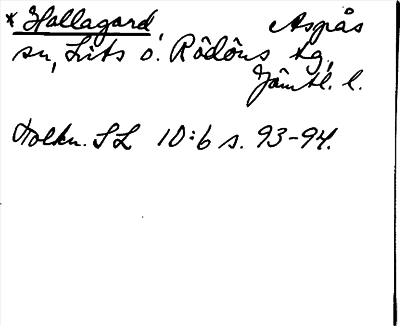 * Hallagard, Aspås
sn, Lits o. Rödöns tg,
Jämtl. l.
Tolkn. SL 10:6 s. 93-94.